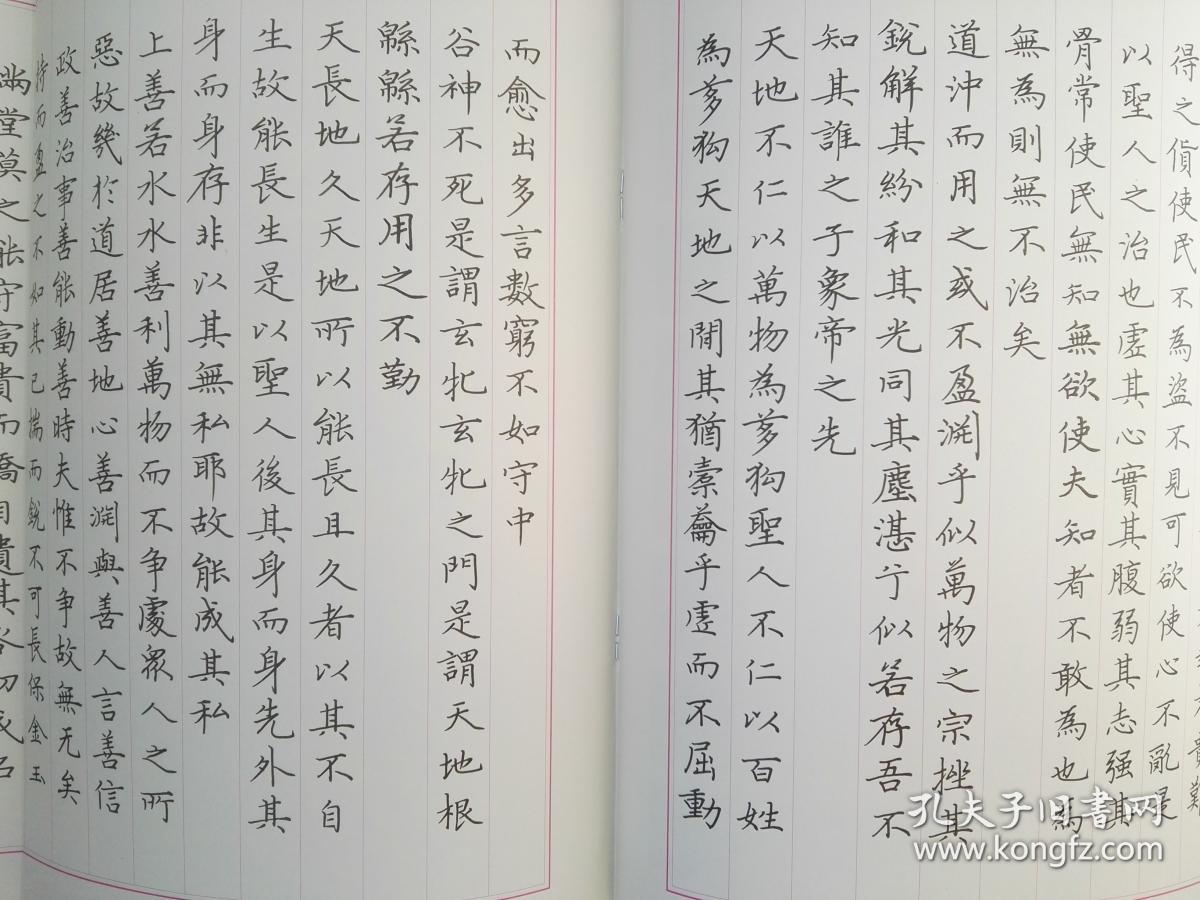 得之貨使民不為盜不見可欲使心不亂是
以聖人之治也虛其心實其腹弱其志强其
骨常使民無知無欲使夫知者不敢為也為
無為則無不治矣
道沖而用之或不盈淵乎似萬物之宗挫其
銳解其紛和其光同其塵湛兮似若存吾不
知其誰之子象帝之先
天地不仁以萬物為芻狗聖人不仁以百姓
為芻狗天地之間其猶橐籥乎虛而不屈動
而愈出多言數窮不如守中
谷神不死是謂玄牝玄牝之門是謂天地根
緜緜若存用之不勤
天長地久天地所以能長且久者以其不自
生故能長生是以聖人後其身而身先外其
身而身存非以其無私耶故能成其私
上善若水水善利萬物而不争處眾人之所
惡故幾於道居善地心善淵與善人言善信
政善治事善能動善時夫惟不争故無尤矣
持而盈之不如其已揣而銳不可長保金玉
滿堂莫之能守富貴而驕自遺其咎功成名
孔夫子旧书网
www.kongfz.com